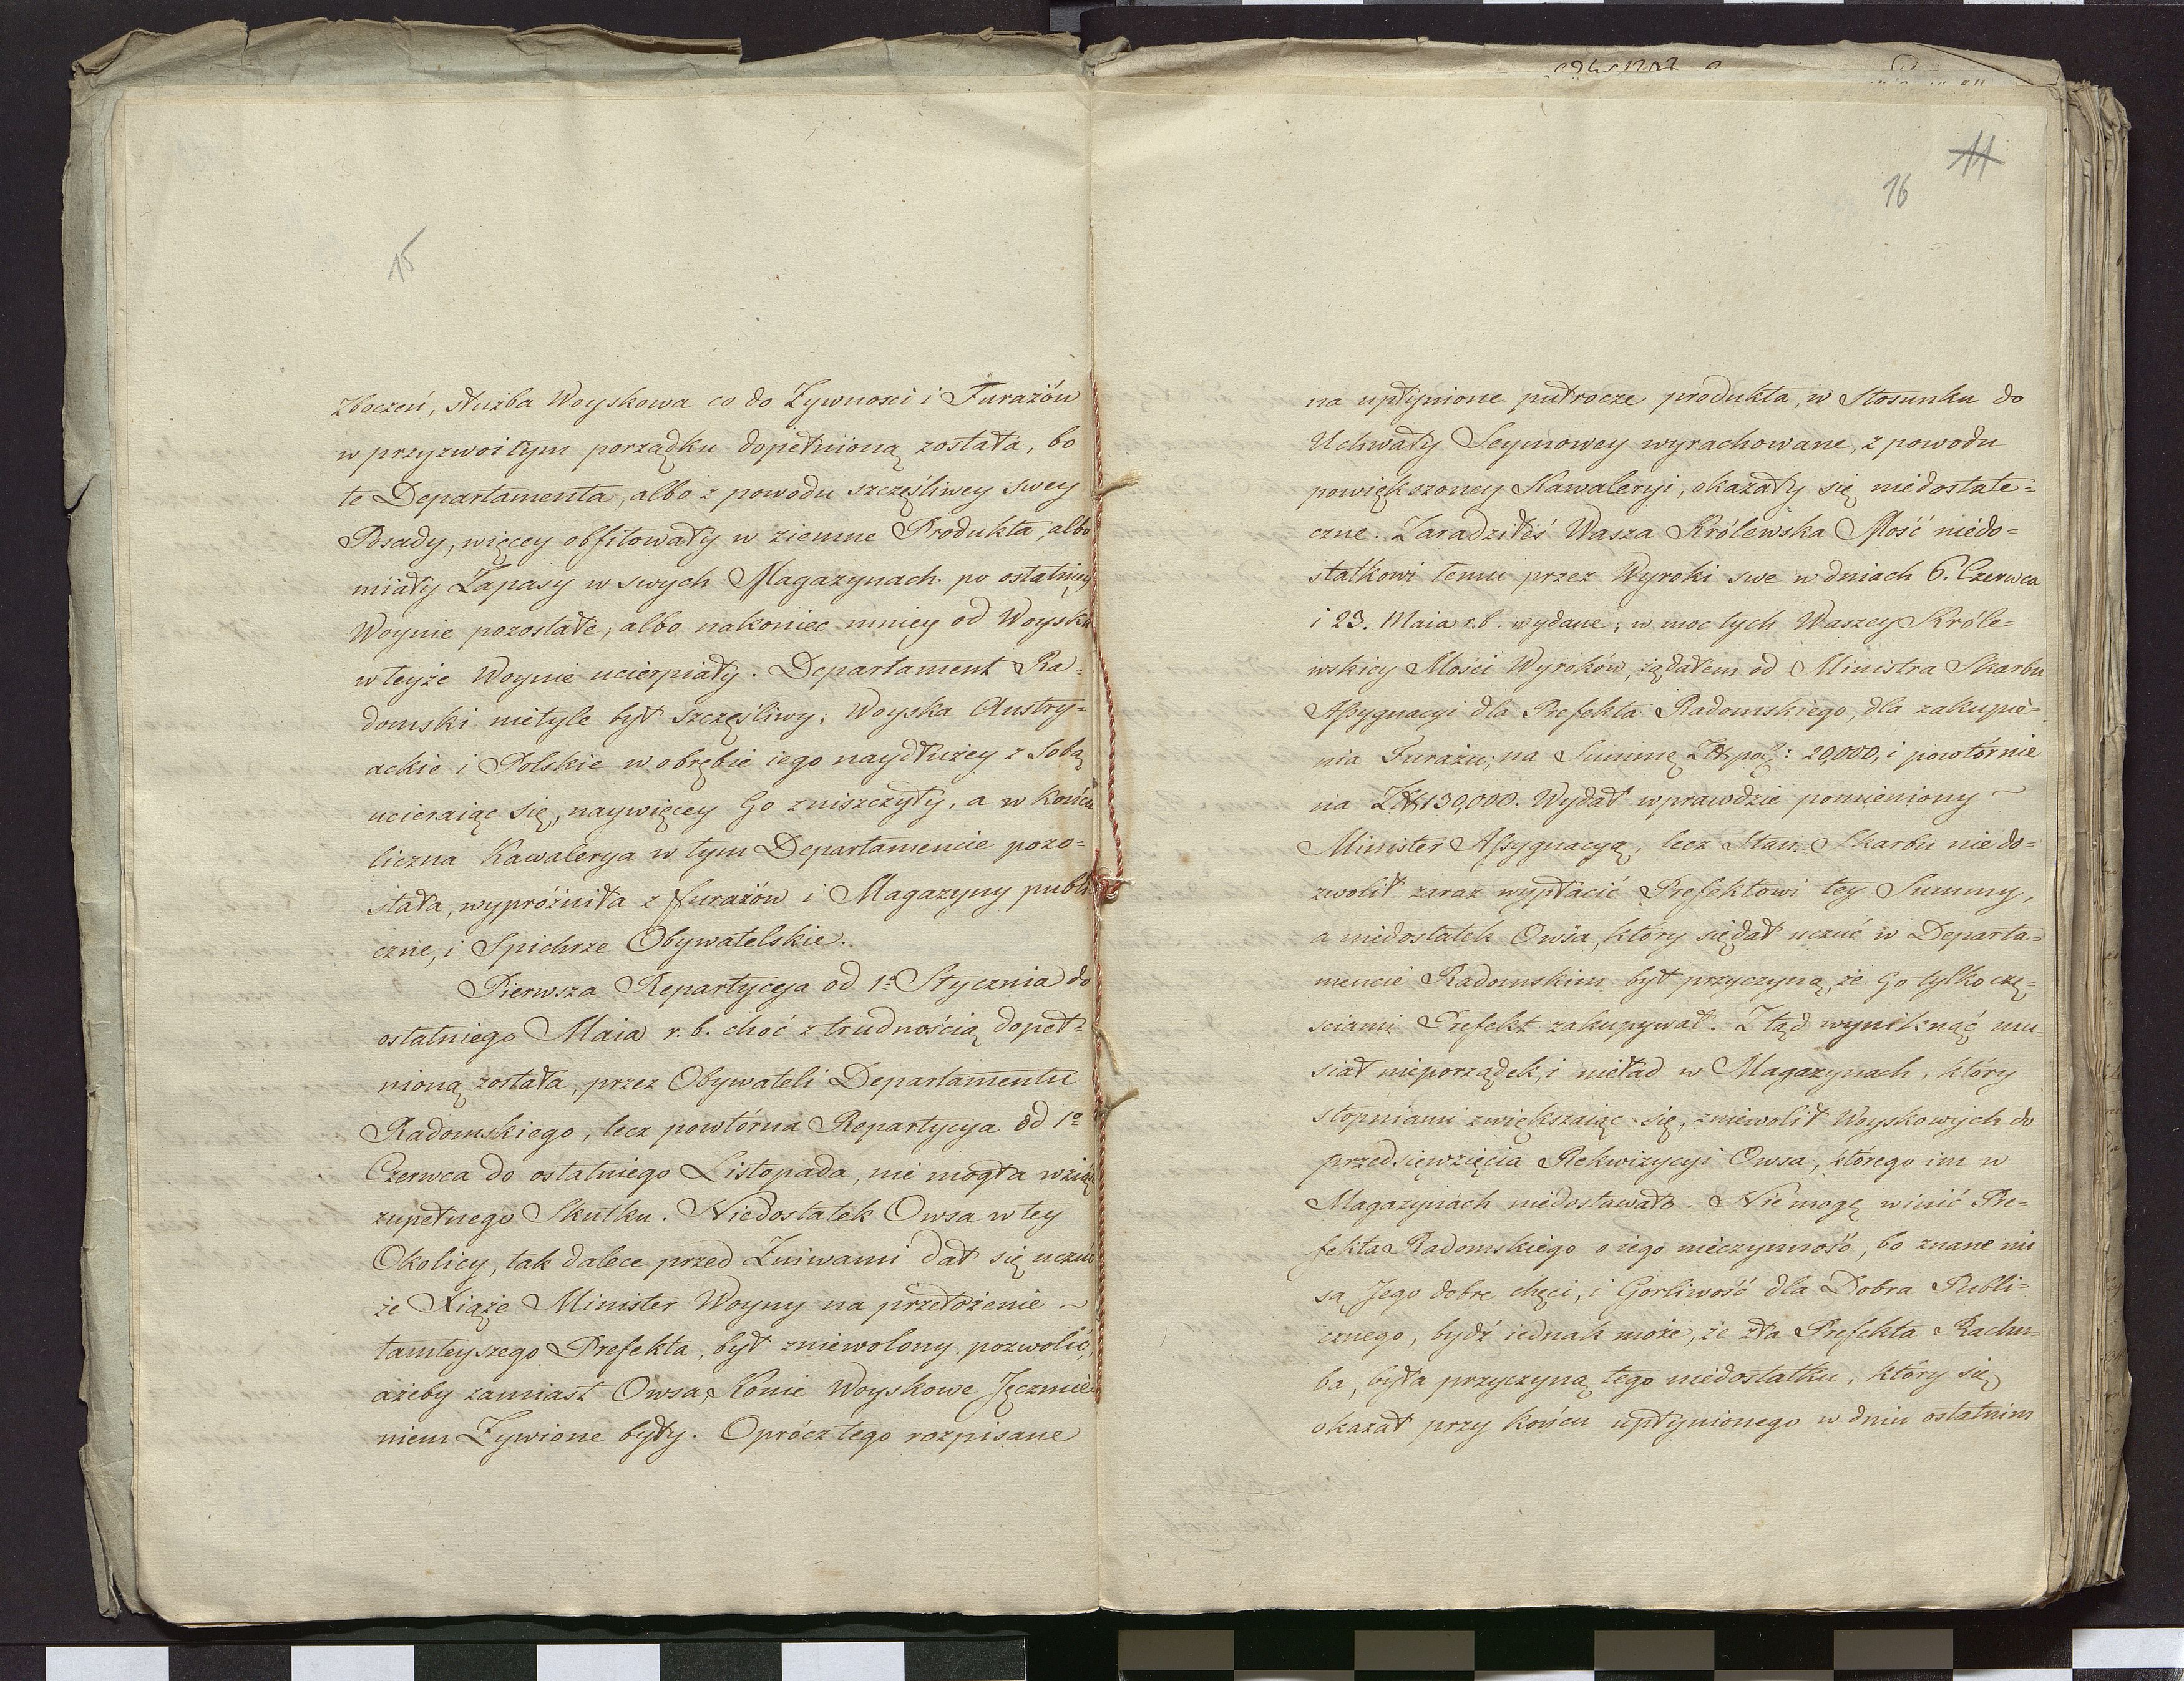 15
zboczeń, służba Woyskowa co do Żywnosci i Furażów
w przyzwoitym porządku dopełnioną została, bo
te Departamenta, albo z powodu szczęśliwey swey
Posady, więcey obfitowały w ziemne Produkta, albo
miały Zapasy w swych Magazynach po ostatniey
Woynie pozostałe, albo nakoniec mniey od Woyska
w teyże Woynie ucierpiały. Departament Ra-
domski nietyle był szczęśliwy; Woyska Austry-
ackie i Polskie w obrębie iego naydłużey z Sobą
ucieraiąc się, naywięcey Go zniszczyły, a w końcu
liczna Kawalerya w tym Departamencie pozo-
stała, wypróżniła z furażów i Magazyny publi-
czne, i Spichrze Obywatelskie.
Pierwsza Repartycya od 1º Stycznia do
ostatniego Maia r. b. choć z trudnością dopeł-
nioną została, przez Obywateli Departamentu
Radomskiego, lecz powtórna Repartycya od 1º
Czerwca do ostatniego Listopada, nie mogła wziąść
zupełnego Skutku. Niedostatek Owsa w tey
Okolicy, tak dalece przed Żniwami dał się uczuć
że Xiąże Minister Woyny na przełożenie ~
tamteyszego Prefekta, był zniewolony pozwolić,
ażeby zamiast Owsa, Konie Woyskowe Jęczmie-
niem Żywione były. Oprócz tego rozpisane
11
16
na upłynione pułrocze produkta, w Stosunku do
Uchwały Seymowey wyrachowane, z powodu
powiększoney Kawaleryi, okazały się niedostate-
czne. Zaradziłeś Wasza Królewska Mość niedo-
statkowi temu przez Wyroki swe w dniach 6. Czerwca
i 23. Maia r.b. wydane; w moc tych Waszey Króle-
wskiey Mości Wyroków, żądałem od Ministra Skarbu
Aßygnacyi dla Prefekta Radomskiego, dla zakupie-
nia Furażu, na Summę Złł pol: 20,000, i powtórnie
na Złł 130,000. Wydał wprawdzie pomieniony ~
Minister Aßygnacyą, lecz Stan Skarbu niedo-
zwolił zaraz wypłacić Prefektowi tey Summy,
a niedostatek Owsa, który się dał uczuć w Departa-
mencie Radomskim był przyczyną, że Go tylko czę-
sciami Prefekt zakupywał. Ztąd wyniknąć mu-
siał nieporządek, i nieład w Magazynach, który
stopniami zwiększaiąc się, zniewolił Woyskowych do
przedsięwzięcia Rekwizycyi Owsa, którego im w
Magazynach niedostawało. Nie mogę winić Pre-
fekta Radomskiego o iego nieczynność, bo znane mi
są Jego dobre chęci, i Gorliwość dla Dobra Publi-
cznego, bydź iednak może, że zła Prefekta Rachu-
ba, była przyczyną tego niedostatku, który się
okazał przy końcu upłynionego w dniu ostatnim